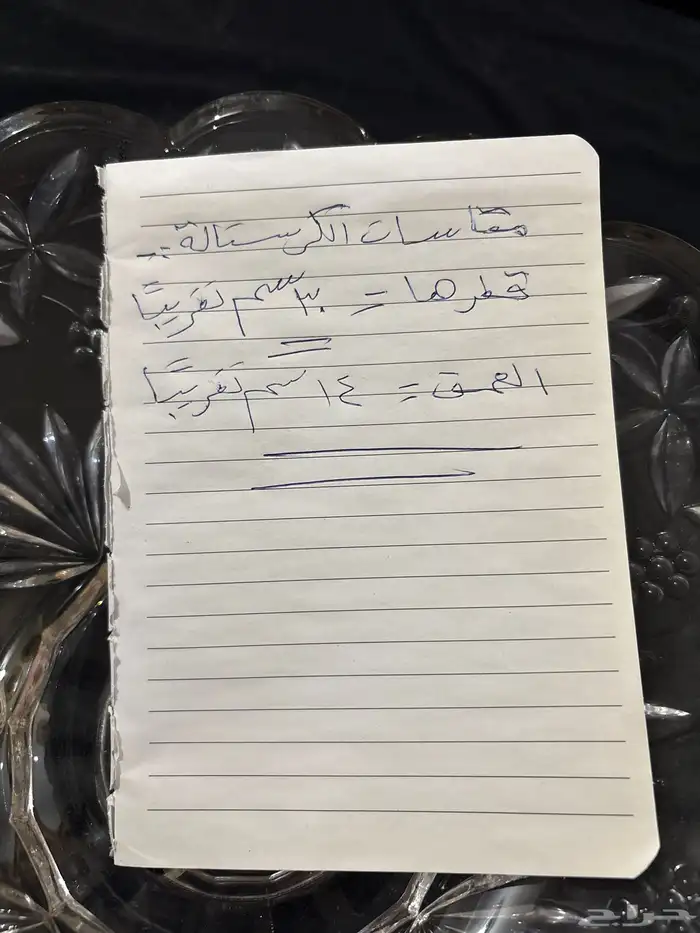 مقاسات الكرستالة ..
قطرها = ٣٠ سم تقريبًا
العمق = ١٤ سم تقريبًا
حراج